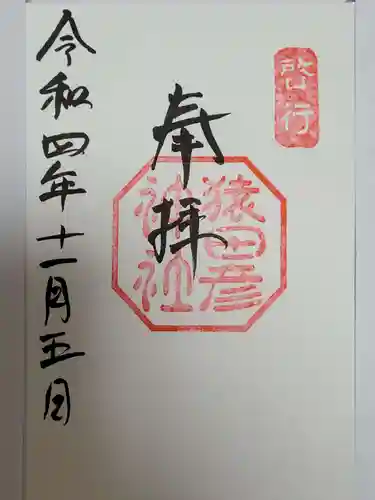 啓行
奉拝
猿田彦
神社
令和四年十一月五日